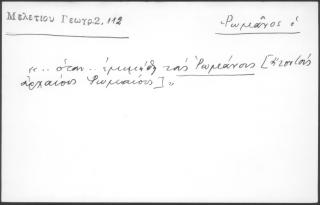 Μελετίου Γεωγρ 2, 112
Ῥωμᾶνος ὁ
«.. ὅταν .. τοὺς Ῥωμάνους [ἤτοι τοὺς
ἀρχαίους Ῥωμαίους].»